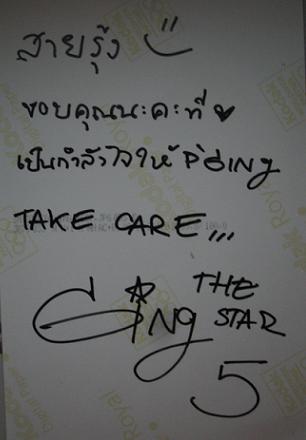 สายรุ้ง
ขอบคุณนะคะที่ ♥
เป็นกำลังใจให้ P'GING
TAKE CARE...
GING THE
STAR
5